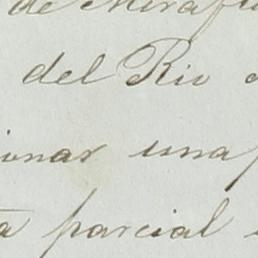 de Miraflo
del Rio
ionar una
ta parcial